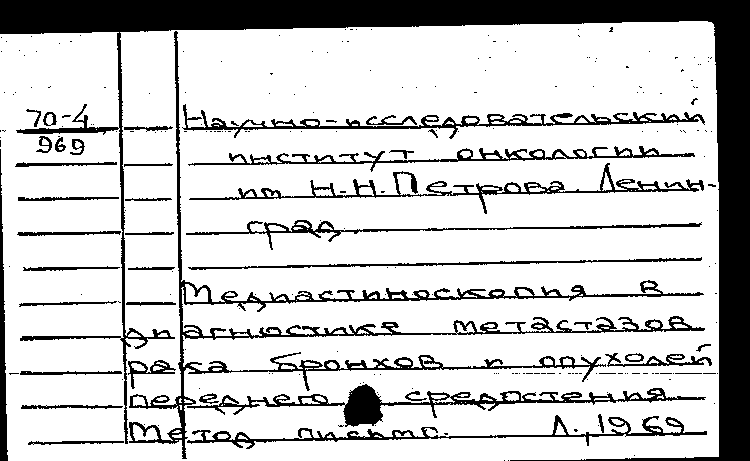 70-4
969
Научно-исследовательский
институт онкологии
им Н.Н.Петрова. Ленин-
град.
Медиастиноскопия в
диагностике метастазов
рака бронхов и опухолей
переднего средостения.
Метод письмо. Л., 1969